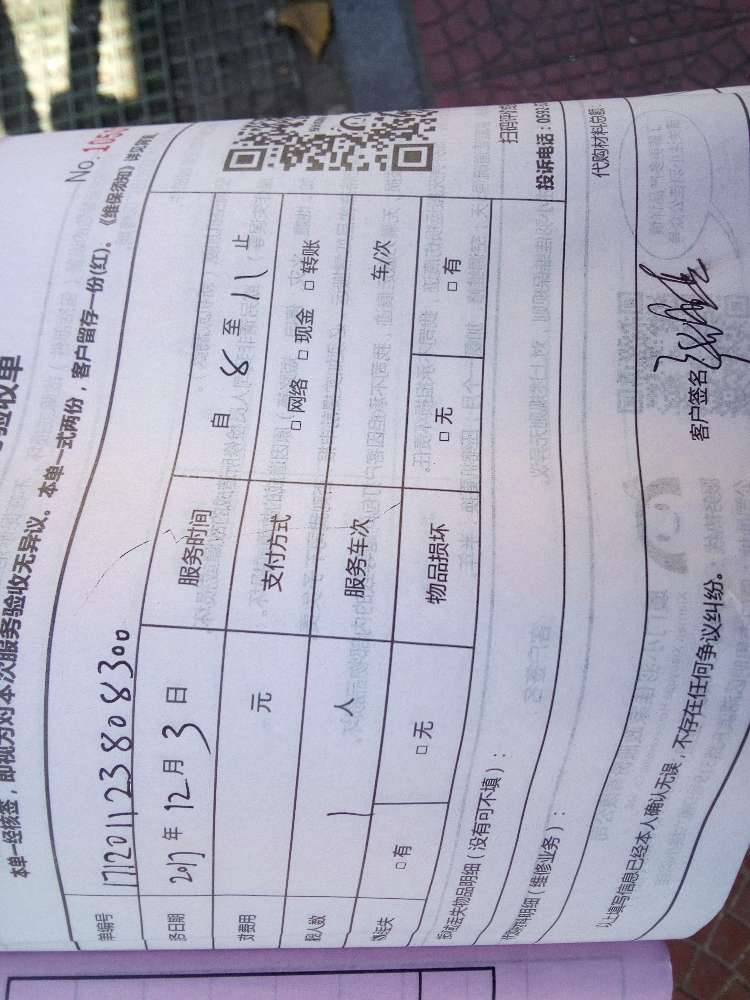 验收单
No. 105
本单一经核签，即视为对本次服务验收无异议。本单一式两份，客户留存一份(红)。《维保须知》详见背页
单编号 171201123808300
务日期 2017 年 12 月 3 日 服务时间 自 8 至 11 止
费用 元 支付方式 □ 网络 □ 现金 □ 转账
人数 1 人 服务车次 车/次
□ 有 □ 无 物品损坏 □ 无 □ 有
失物品明细（没有可不填）：
扫码评
投诉电话：059
明细（维修业务）：
代购材料总
以上填写信息已经本人确认无误，不存在任何争议纠纷。
客户签名